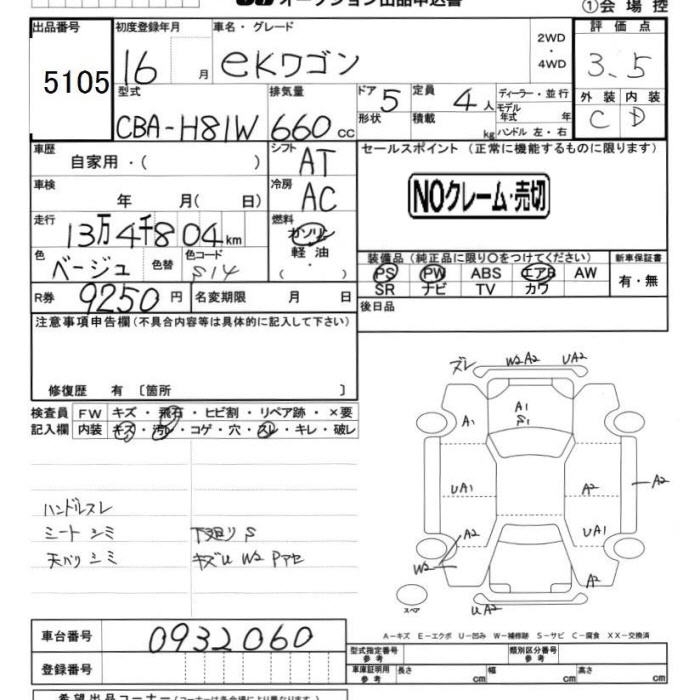 オークション出品申込書
①会場控
出品番号
5105
初度登録年月
16 月
車名・グレード
eKワゴン
2WD
・
4WD
評価点
3.5
型式
CBA-H81W
排気量
660 cc
ドア 5
形状
定員 4 人
積載 kg
ディーラー・並行
モデル
年式 年
ハンドル 左・右
外装 内装
C D
車歴
自家用・( )
シフト
AT
セールスポイント (正常に機能するものに限ります)
車検
年 月( 日)
冷房
AC
NOクレーム・売切
走行
13万4千804km
燃料
ガソリン
軽油
( ・ )
色
ベージュ
色替
色コード
S14
装備品(純正品に限り○をつけてください)
PS PW ABS エアB AW
SR ナビ TV カワ
新車保証書
有・無
R券 9250 円
名変期限 月 日
後日品
注意事項申告欄(不具合内容等は具体的に記入して下さい)
修復歴 有 〔箇所 〕
検査員
記入欄
FW キズ・飛石・ヒビ割・リペア跡・×要
内装 キズ・汚レ・コゲ・穴・スレ・キレ・破レ
ハンドルスレ
シートシミ
天バリシミ
下廻りS
キズU W2 Pアセ
ズレ W2 A2 UA2
A1
S1
A1
UA1
A2
A2
A2
UA1
W2
A2
UA2
スペア
A-キズ E-エクボ U-凹み W-補修跡 S-サビ C-腐食 XX-交換済
車台番号
0932060
登録番号
型式指定番号
参考
類別区分番号
参考
車庫証明用
参考
長さ cm
幅 cm
高さ cm
希望出品コーナー(コーナーは会場により異なります)